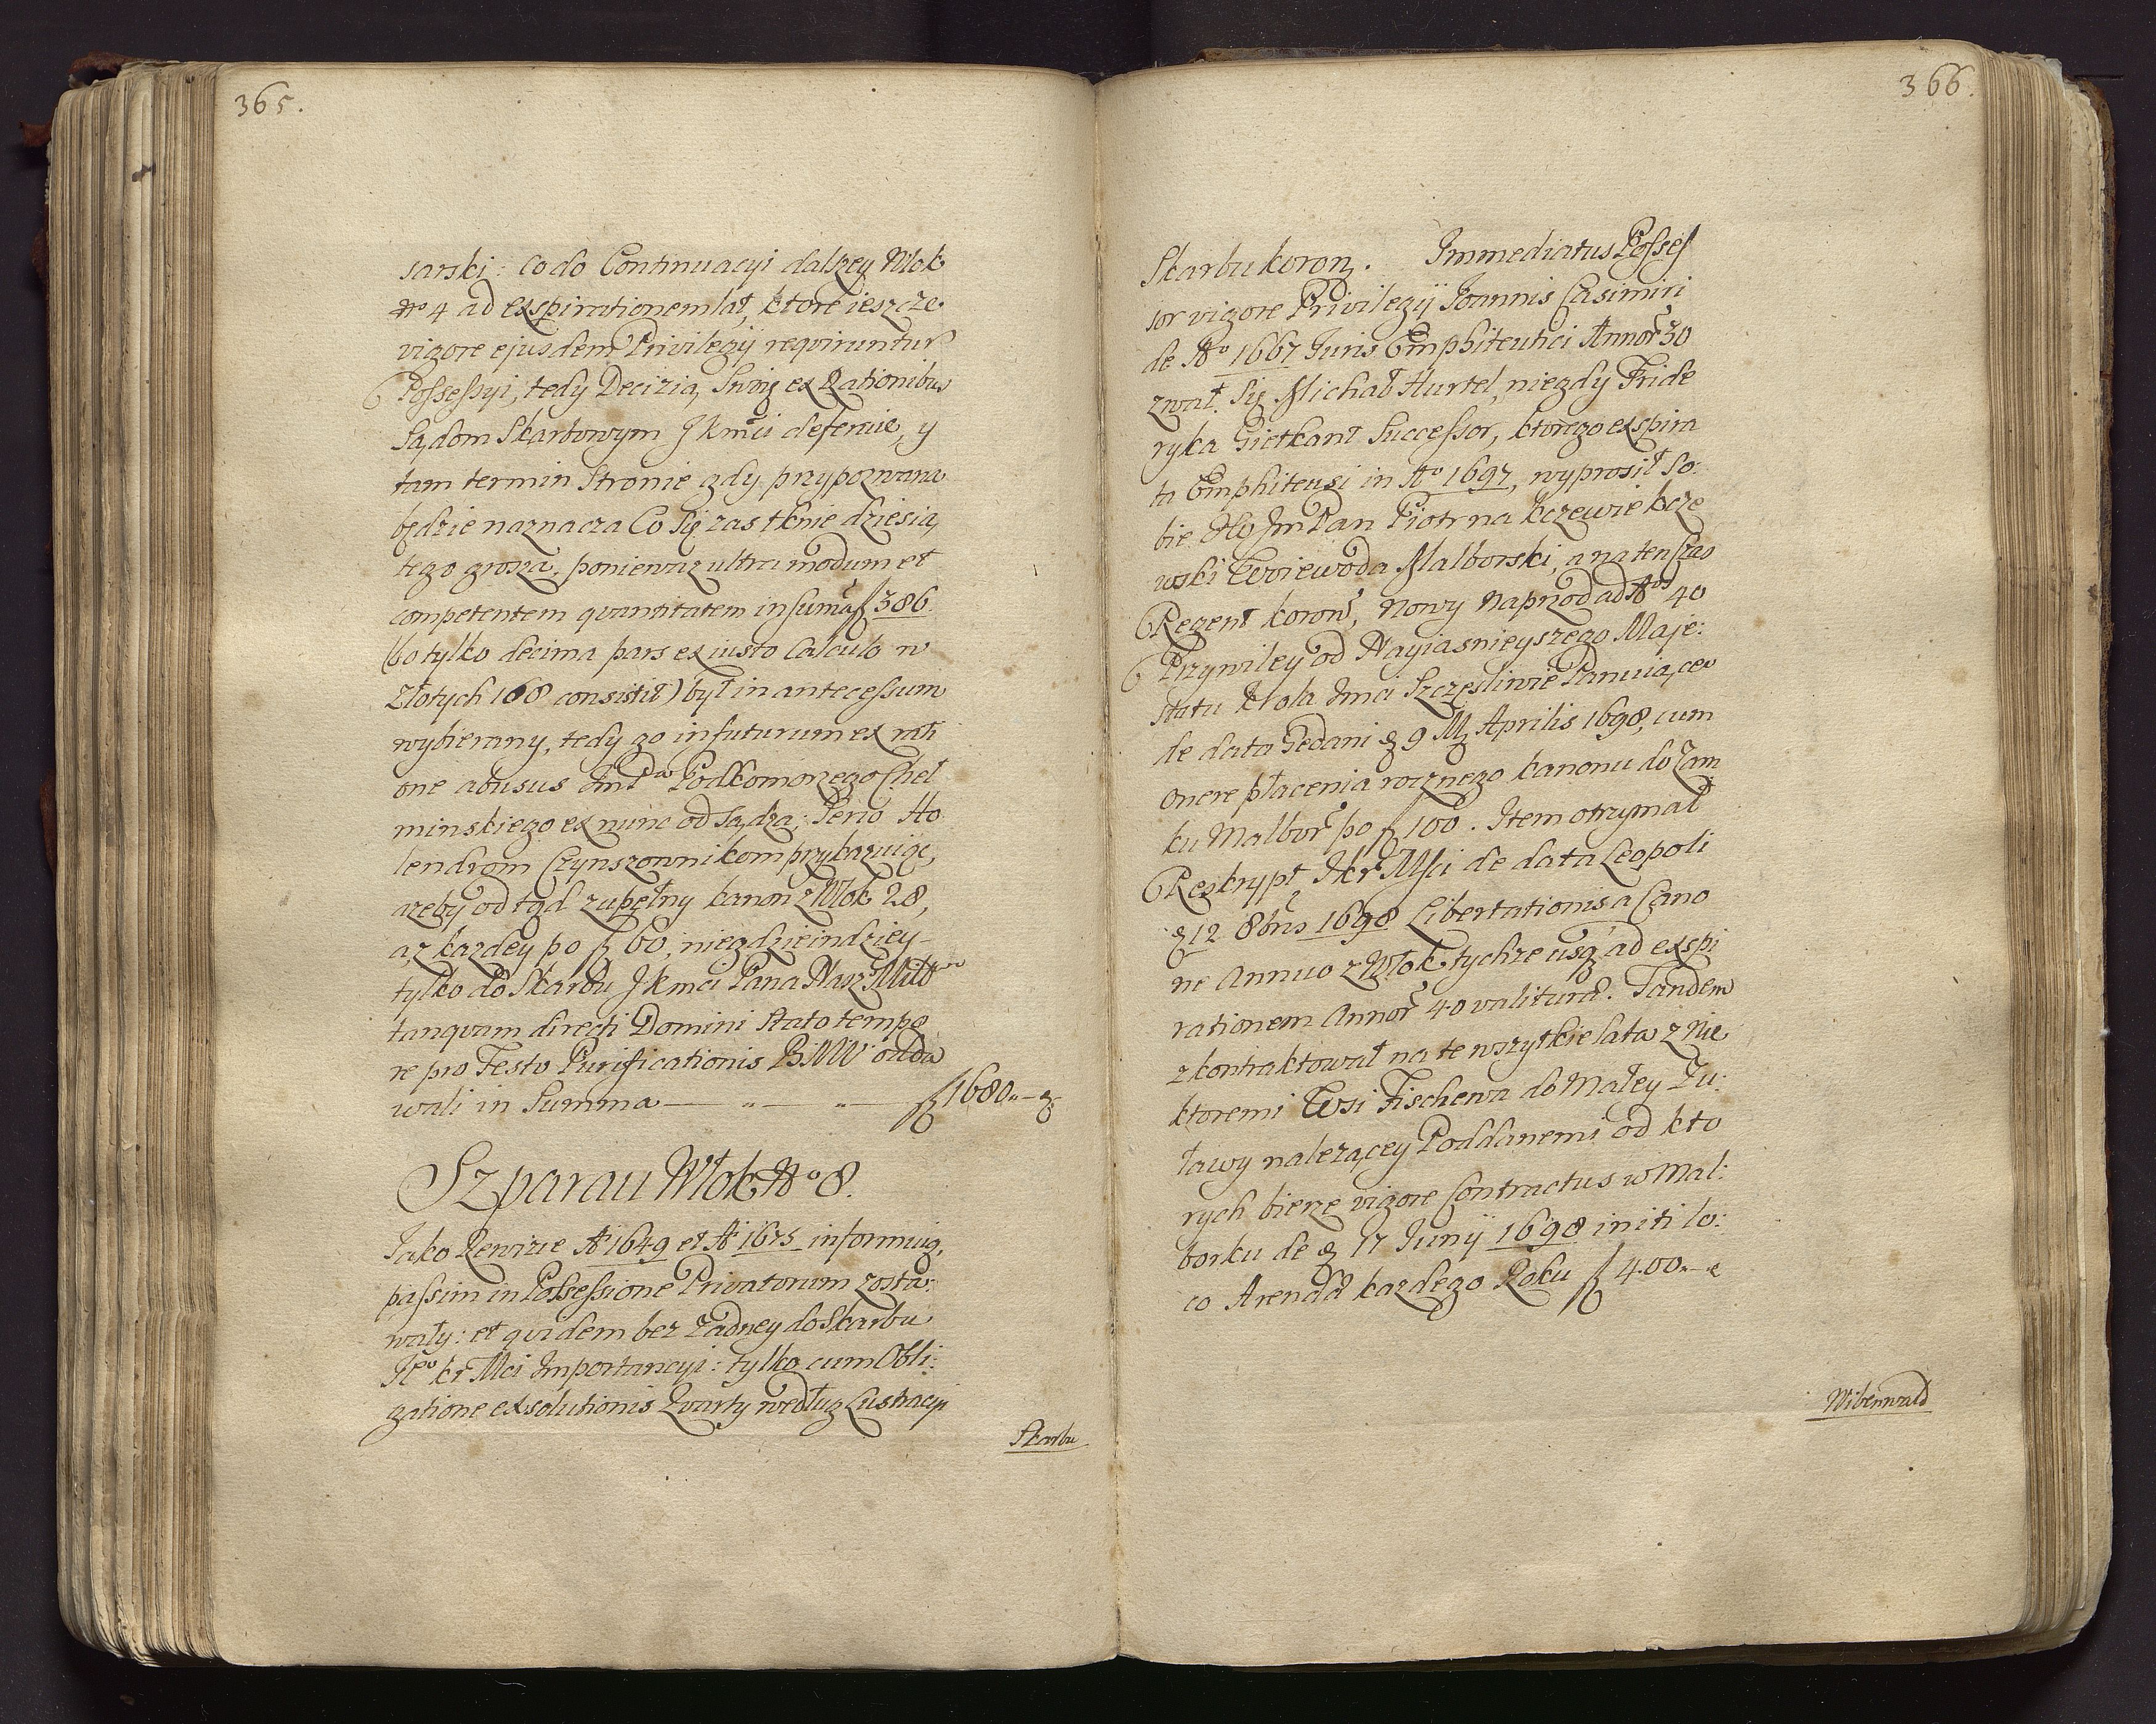 365.
sarski: co do Continuacyi dalszey Włok
No 4 ad exspirationem lat, ktore ieszcze
vigore ejusdem Privilegij requiruntur
Possessyi, tedy Decizią Swoię ex Rationibus
Sądom Skarbowym JKmci deferuie, y
tam termin Stronie gdy przypozwana
będzie naznacza Co Się zas tknie dziesią,
tego grosza, poniewaz ultra modum et
competentem quantitatem in summa f 386.
(bo tylko decima pars ex iusto Calculo w
Złotych 168 consistit) był in antecessum
wybierany, tedy go in futurum ex rati
one abusus Podkomorzego Cheł
minskiego ex nunc od Sądza; Seno Ho
lendrom Czynszownikom przykazuiąc,
azeby od tąd zupełny kanon z Włok 28,
a z kazdey po f 60, niegdzieindziey
tylko do Skarbu JKmci Pana Nasz Miłł
tanquam directi Domini stato tempo
re pro Festo Purificationis BMV oddа
wali in Summa — " — " — f 1680 " — g
Szparau Włok No 8.
Jako Rewizie A 1649 et A 1675 informuią,
passim in Possessione Privatorum zosta:
wały: et quidem bez zadney do Skarbu
Jo kr Mci Importancyi: tylko cum Obli:
gatione exsolutionis Quarty według Lustracyi
Skarbu
366.
Skarbu koron. Immediatus Posses
sor vigore Privilegij Joannis Casimiri
de Ao 1667 Juris Emphiteutici Annor 30
zwał Się Michał Hurtel, niegdy Fride
ryka Gietkant Successor, ktorego exspira
ta Emphiteusi in Ao 1697, wyprosił So:
bie Jm Pan Piotr na Kczewie Kcze
wski Woiewoda Malborski, a na ten Czas
Regent koron, Nowy naprzod ad Aos 40
Przywiley od Nayiasnieyszego Maje:
statu Krola Jmci Szczęsliwie Panuiące
de data Gedani d 9 M Aprilis 1698, cum
onere płacenia rocznego kanonu do Zam
ku Malbor po f 100. Item otrzymał
Reskrypt Jkr Msci de data Leopoli
d 12 8bris 1698 Libertationis a Cano
ne Annuo z Włok tychze usq ad exspi
rationem Annor 40 valitura. Tandem
zkontraktował na te wszytkie lata z nie
ktoremi Wsi Fischewa do Małey Zu:
ławy nalezącey Poddanemi od kto
rych bierze vigore Contractus w Mal:
borku de d 17 Junij 1698 initi lo:
co Arenda kazdego Roku f 400 " —
Wibenwald